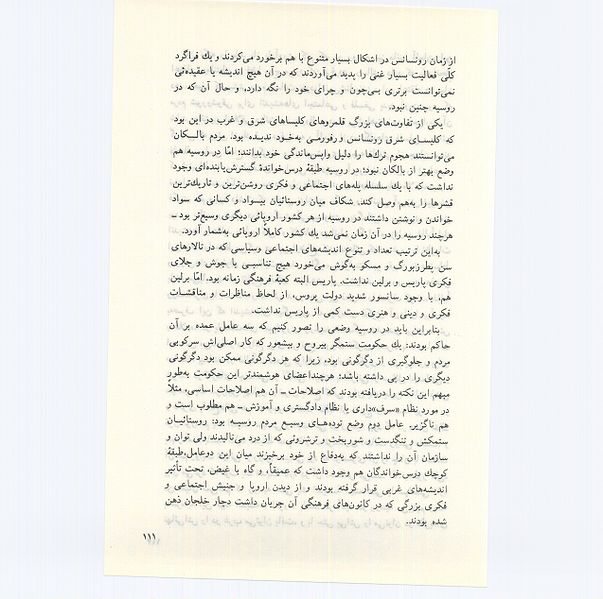 از زمان رونسانس در اشکال بسیار متنوع با هم برخورد می‌کردند و یك فراگرد
کلّی فعالیت بسیار غنی را پدید می‌آوردند که در آن هیچ اندیشه یا عقیده‌ئی
نمی‌توانست برتری بی‌چون و چرای خود را نگه دارد، و حال آن که در
روسیه چنین نبود.
یکی از تفاوت‌های بزرگ قلمروهای کلیساهای شرق و غرب در این بود
که کلیسای شرق رونسانس و رفورمی به‌خود ندیده بود. مردم بالکان
می‌توانستند هجوم ترك‌ها را دلیل واپس‌ماندگی خود بدانند؛ امّا در روسیه هم
وضع بهتر از بالکان نبود؛ در روسیه طبقهٔ درس‌خواندهٔ گسترش‌یابنده‌ای وجود
نداشت که با یك سلسله پله‌های اجتماعی و فکری روشن‌ترین و تاریك‌ترین
قشرها را به‌هم وصل کند. شکاف میان روستائیان بیسواد و کسانی که سواد
خواندن و نوشتن داشتند در روسیه از هر کشور اروپائی دیگری وسیع‌تر بود ــ
هرچند روسیه را در آن زمان نمی‌شد یك کشور کاملاً اروپائی به‌شمار آورد.
به‌این ترتیب تعداد و تنوع اندیشه‌های اجتماعی وسیاسی که در تالارهای
سن پطرزبورگ و مسکو به‌گوش می‌خورد هیچ تناسبی با جوش و جلای
فکری پاریس و برلین نداشت. پاریس البته کعبهٔ فرهنگی زمانه بود. امّا برلین
هم، با وجود سانسور شدید دولت پروس، از لحاظ مناظرات و مناقشات
فکری و دینی و هنری دست کمی از پاریس نداشت.
بنابراین باید در روسیه وضعی را تصور کنیم که سه عامل عمده بر آن
حاکم بودند: یك حکومت ستمگر بیروح و بیشعور که کار اصلی‌اش سرکوبی
مردم و جلوگیری از دگرگونی بود، زیرا که هر دگرگونی ممکن بود دگرگونی
دیگری را در پی داشته باشد؛ هرچنداعضای هوشمندتر این حکومت به‌طور
مبهم این نکته را دریافته بودند که اصلاحات ــ آن هم اصلاحات اساسی، مثلاً
در مورد نظام «سرف»داری یا نظام دادگستری و آموزش ــ هم مطلوب است و
هم ناگزیر. عامل دوم وضع توده‌های وسیع مردم روسیه بود: روستائیان
ستمکش و تنگدست و شوربخت و ترشروئی که از درد می‌نالیدند ولی توان و
سازمان آن را نداشتند که به‌دفاع از خود برخیزند میان این دوعامل،طبقهٔ
کوچك درس‌خواندگان هم وجود داشت که عمیقاً، و گاه با غیض، تحت تأثیر
اندیشه‌های غربی قرار گرفته بودند و از دیدن اروپا و جنبش اجتماعی و
فکری بزرگی که در کانون‌های فرهنگی آن جریان داشت دچار خلجان ذهن
شده بودند.
۱۱۱